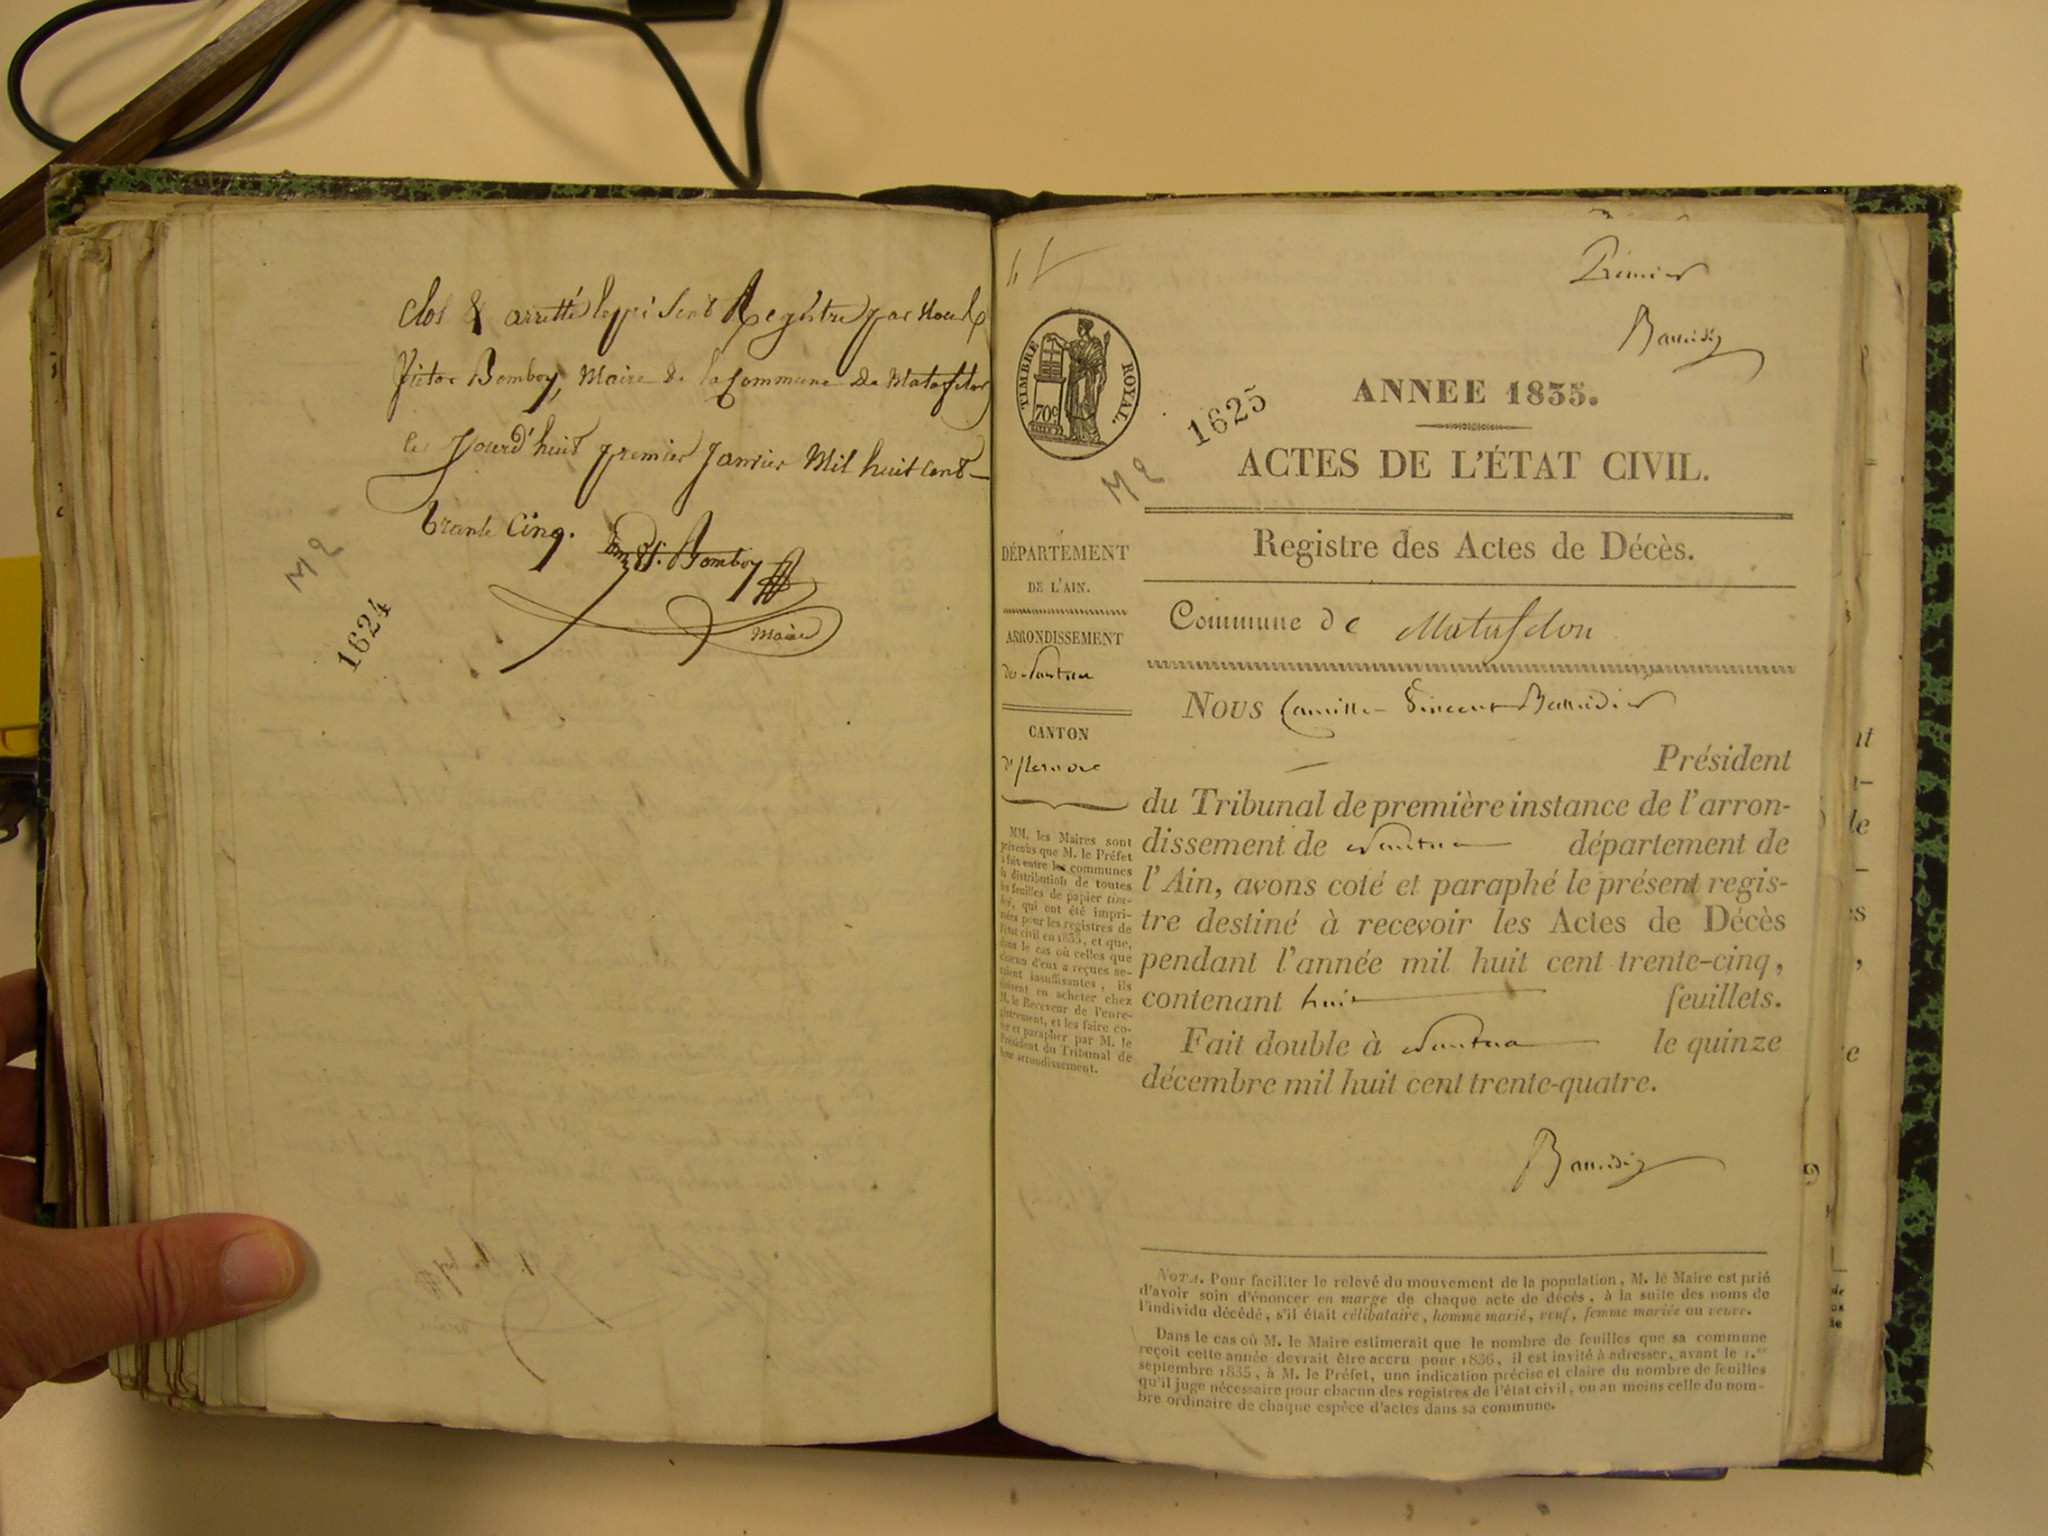 Clos & arretté le présent Registre par nous
Victor Bomboy, Maire de la Commune de Matafelon
le jourd'huit premier Janvier Mil huit cent
trante cinq. Bomboy
Maire
M 2
1624
Premier
TIMBRE ROYAL.
70c
M 2
1625
ANNEE 1835.
ACTES DE L'ÉTAT CIVIL.
Registre des Actes de Décès.
Commune de Matafelon
DÉPARTEMENT
DE L'AIN.
ARRONDISSEMENT
de Nantua
CANTON
d'Izernore
MM. les Maires sont
prévenus que M. le Préfet
a fait entre les communes
la distribution de toutes
les feuilles de papier tim-
bré, qui ont été impri-
mées pour les registres de
l'état civil en 1835, et que,
dans le cas où celles que
chacun d'eux a reçues se-
raient insuffisantes, ils
doivent en acheter chez
M. le Receveur de l'enre-
gistrement, et les faire co-
ter et parapher par M. le
Président du Tribunal de
leur arrondissement.
Nous Camille Vincent
Président
du Tribunal de première instance de l'arron-
dissement de Nantua département de
l'Ain, avons coté et paraphé le présent regis-
tre destiné à recevoir les Actes de Décès
pendant l'année mil huit cent trente-cinq,
contenant huit feuillets.
Fait double à Nantua le quinze
décembre mil huit cent trente-quatre.
NOTA. Pour faciliter le relevé du mouvement de la population, M. le Maire est prié
d'avoir soin d'énoncer en marge de chaque acte de décès, à la suite des noms de
l'individu décédé, s'il était célibataire, homme marié, veuf, femme mariée ou veuve.
Dans le cas où M. le Maire estimerait que le nombre de feuilles que sa commune
reçoit cette année devrait être accru pour 1836, il est invité à adresser, avant le 1.er
septembre 1835, à M. le Préfet, une indication précise et claire du nombre de feuilles
qu'il juge nécessaire pour chacun des registres de l'état civil, ou au moins celle du nom-
bre ordinaire de chaque espèce d'actes dans sa commune.